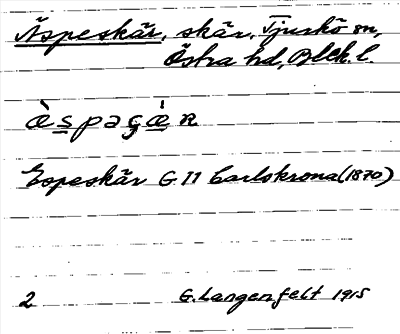 Äspeskär, skär, Tjurkö sn,
Östra hd, Blek. l.
Espeskär G 11 Carlskrona (1870)
2 G. Langenfelt 1915